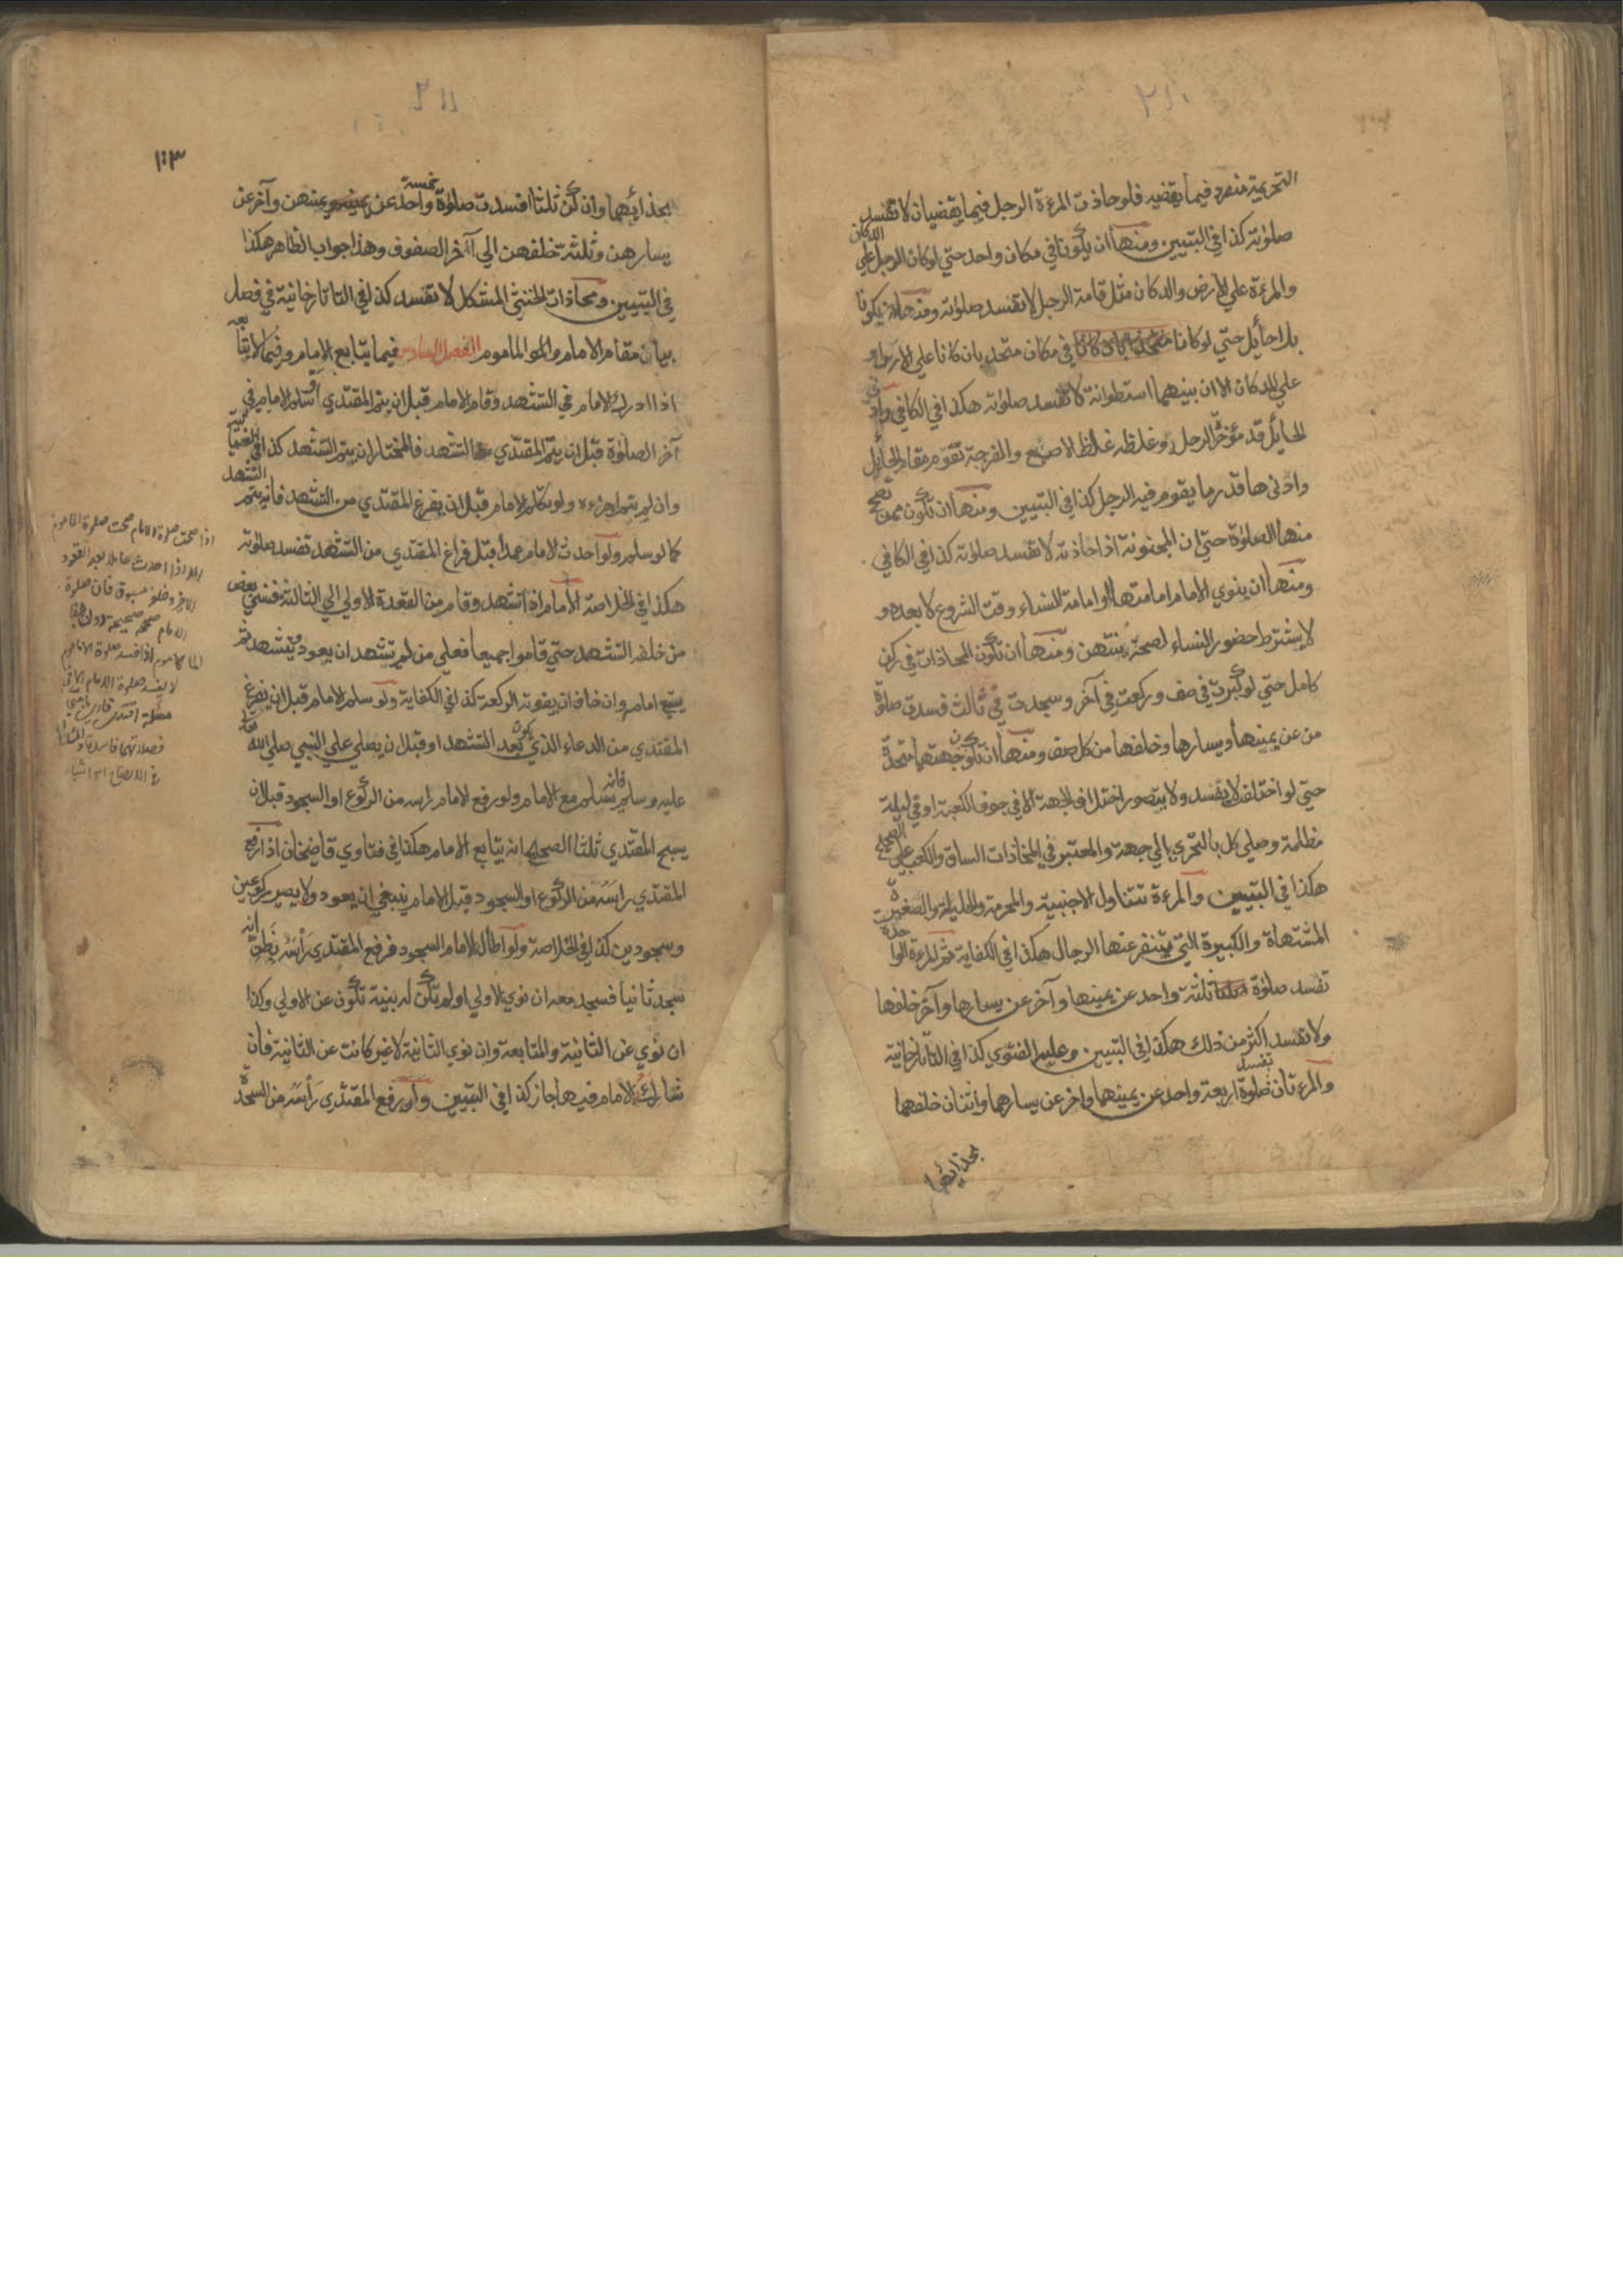 التحريمة منفرد فيما يقضيه فلو حاذت المرءة الرجل فيما يقضيان لا تفسد
صلوته كذا في التبيين ومنها ان يكونا في مكان واحد حتي لو كان الرجل علي الدكان
والمرءة علي الارض والدكان مثل قامة الرجل لا تفسد صلوته ومنها ان يكونا
بلا حائل حتي لو كانا في مكان متحد بان كانا علي الارض او
علي الدكان الا ان بينهما اسطوانة لا تفسد صلوته هكذا في الكافي وادني
الحائل قدر مؤخر الرحل وغلظه غلظ الاصبع والفرجة تقوم مقام الحائل
وادناها قدر ما يقوم فيه الرجل كذا في التبيين ومنها ان تكون ممن تصح
منها الصلوة حتي ان المجنونة اذا حاذته لا تفسد صلوته كذا في الكافي
ومنها ان ينوي الامام امامتها او امامة النساء وقت الشروع لا بعده و
لا يشترط حضور النساء لصحة نيتهن ومنها ان تكون المحاذات في ركن
كامل حتي لو كبرت في صف وركعت في آخر وسجدت في ثالث فسدت صلوة
من عن يمينها ويسارها وخلفها من كل صف ومنها ان تكون جهتهما متحدة
حتي لو اختلف لا يفسد ولا يتصور اختلاف الجهة الا في جوف الكعبة او في ليلة
مظلمة وصلي كل بالتحري الي جهة والمعتبر في المحاذات الساق والكعب علي الصحيح
هكذا في التبيين والمرءة تتناول الاجنبية والمحرمة والحليلة والصغيرة
المشتهاة والكبيرة التي يتنفر عنها الرجال هكذا في الكفاية ثم المرءة الواحدة
تفسد صلوة ثلثة واحد عن يمينها وآخر عن يسارها وآخر خلفها
ولا تفسد اكثر من ذلك هكذا في التبيين وعليه الفتوي كذا في التاتارخانية
والمرءتان تفسد صلوة اربعة واحد عن يمينهما واخر عن يسارهما واثنان خلفهما
بحذائهما
١٠٣
بحذائهما وان كن ثلثا افسدت صلوة خمسة واحد عن يمينهن وآخر عن
يسارهن وثلثة خلفهن الي آخر الصفوف وهذا جواب الظاهر هكذا
في التبيين ومحاذات الخنثي المشكل لا تفسد كذا في التاتارخانية في فصل
بيان مقام الامام والماموم الفصل السادس فيما يتابع الامام وفيما لا يتابعه
اذا ادرك الامام في التشهد وقام الامام قبل ان يتم المقتدي او سلم الامام في
آخر الصلوة قبل ان يتم المقتدي التشهد فالمختار ان يتم التشهد كذا في الغياثية
وان لم يتم اجزءه ولو تكلم الامام قبل ان يفرغ المقتدي من التشهد فانه يتم التشهد
كما لو سلم ولو احدث الامام عمدا قبل فراغ المقتدي من التشهد تفسد صلوته
هكذا في الخلاصة الامام اذا تشهد وقام من القعدة الاولي الي الثالثة فنسي بعض
من خلفه التشهد حتي قاموا جميعا فعلي من لم يتشهد ان يعود ويتشهد ثم
يتبع امامه وان خاف ان يفوته الركعة كذا في الكفاية ولو سلم الامام قبل ان يفرغ
المقتدي من الدعاء الذي يكون بعد التشهد او قبل ان يصلي علي النبي صلي الله
عليه وسلم فانه يسلم مع الامام ولو رفع الامام راسه من الركوع او السجود قبل ان
يسبح المقتدي ثلثا الصحيح انه يتابع الامام هكذا في فتاوي قاضيخان اذا رفع
المقتدي راسه من الركوع او السجود قبل الامام ينبغي ان يعود ولا يصير ركوعين
وسجودين كذا في الخلاصة ولو اطال الامام السجود فرفع المقتدي رأسه فظن انه
سجد ثانيا فسجد معه ان نوي الاولي او لم تكن له نية تكون عن الاولي وكذا
ان نوي عن الثانية والمتابعة وان نوي الثانية لا غير كانت عن الثانية فان
شارك الامام فيها جاز كذا في التبيين ولو رفع المقتدي رأسه من السجدة
اذا صحت صلوة الامام صحت صلوة الماموم
الا اذا احدث عامدا بعد القعود
الاخر وخلفه مسبوق فان صلوة
الامام صحيحة
اذا فسد صلوة الماموم
لا يفسد صلوة الامام الا في
مسئلة اقتدي قاري بامي